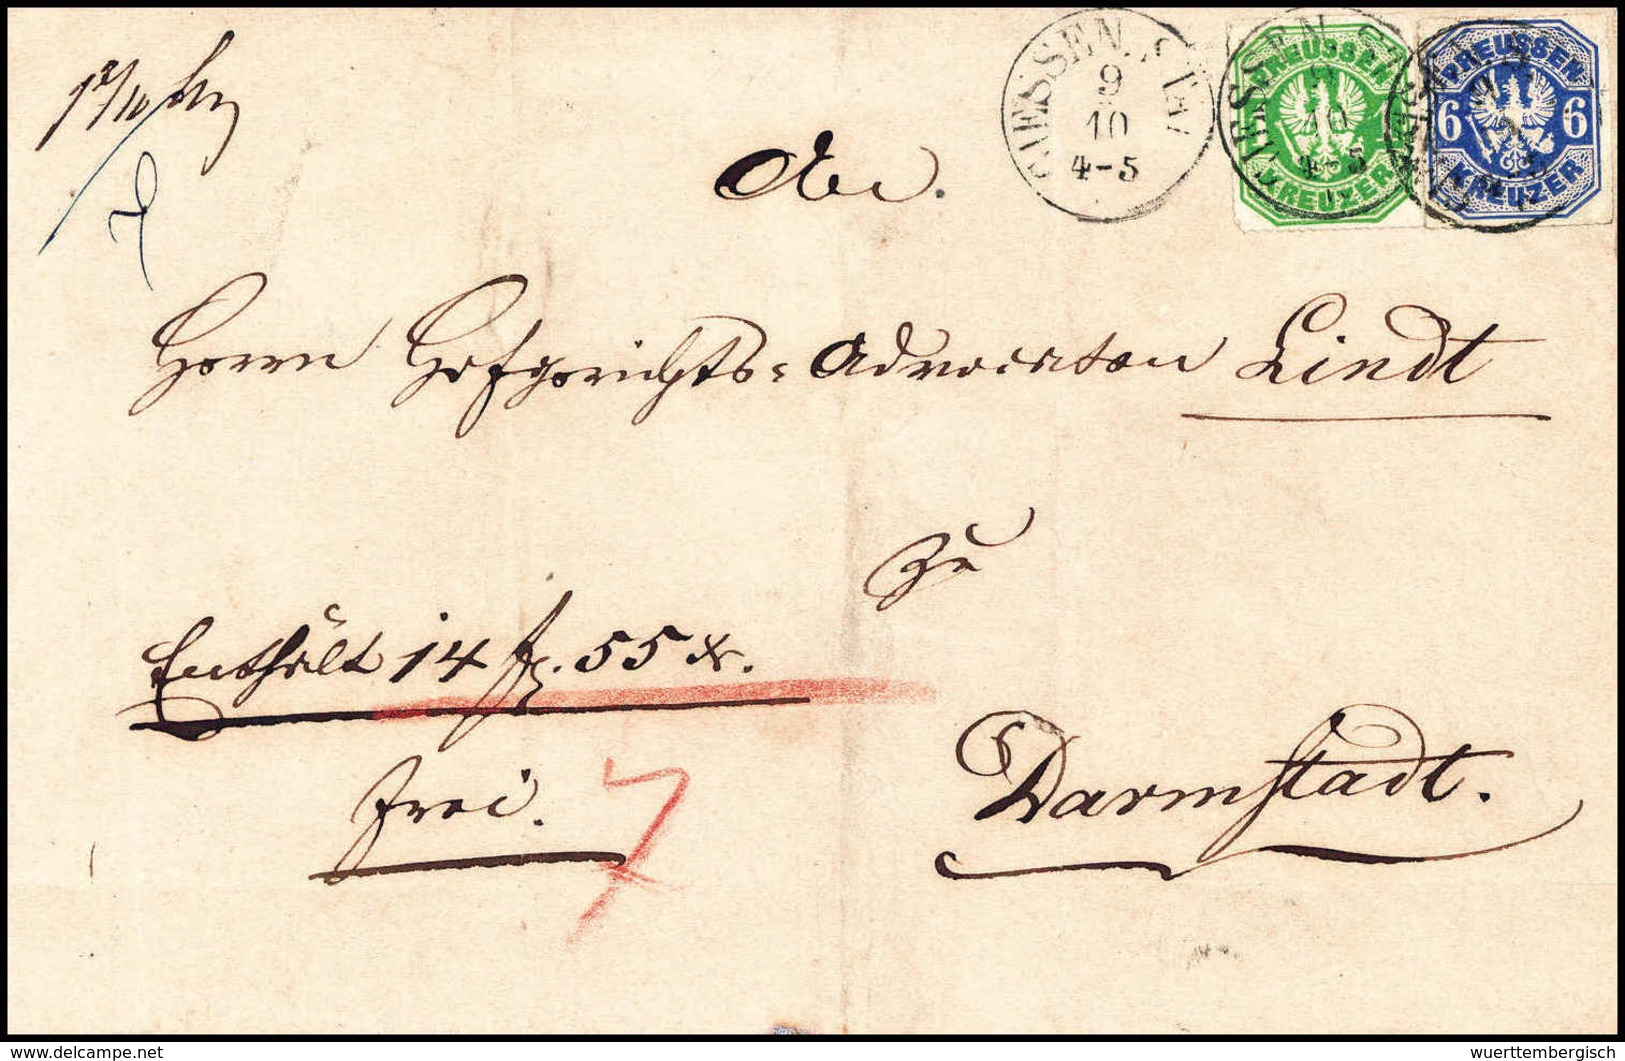 GIESSEN
9
10
4-5
PREUSSEN
10
4-5
KREUZER
PREUSSEN
6 6
KREUZER
Herrn Hofgerichts-Advocaten Lindt
zu
Enthält 14 fl. 55 x.
frei.
7
Darmstadt.
© www.delcampe.net
wuerttembergisch